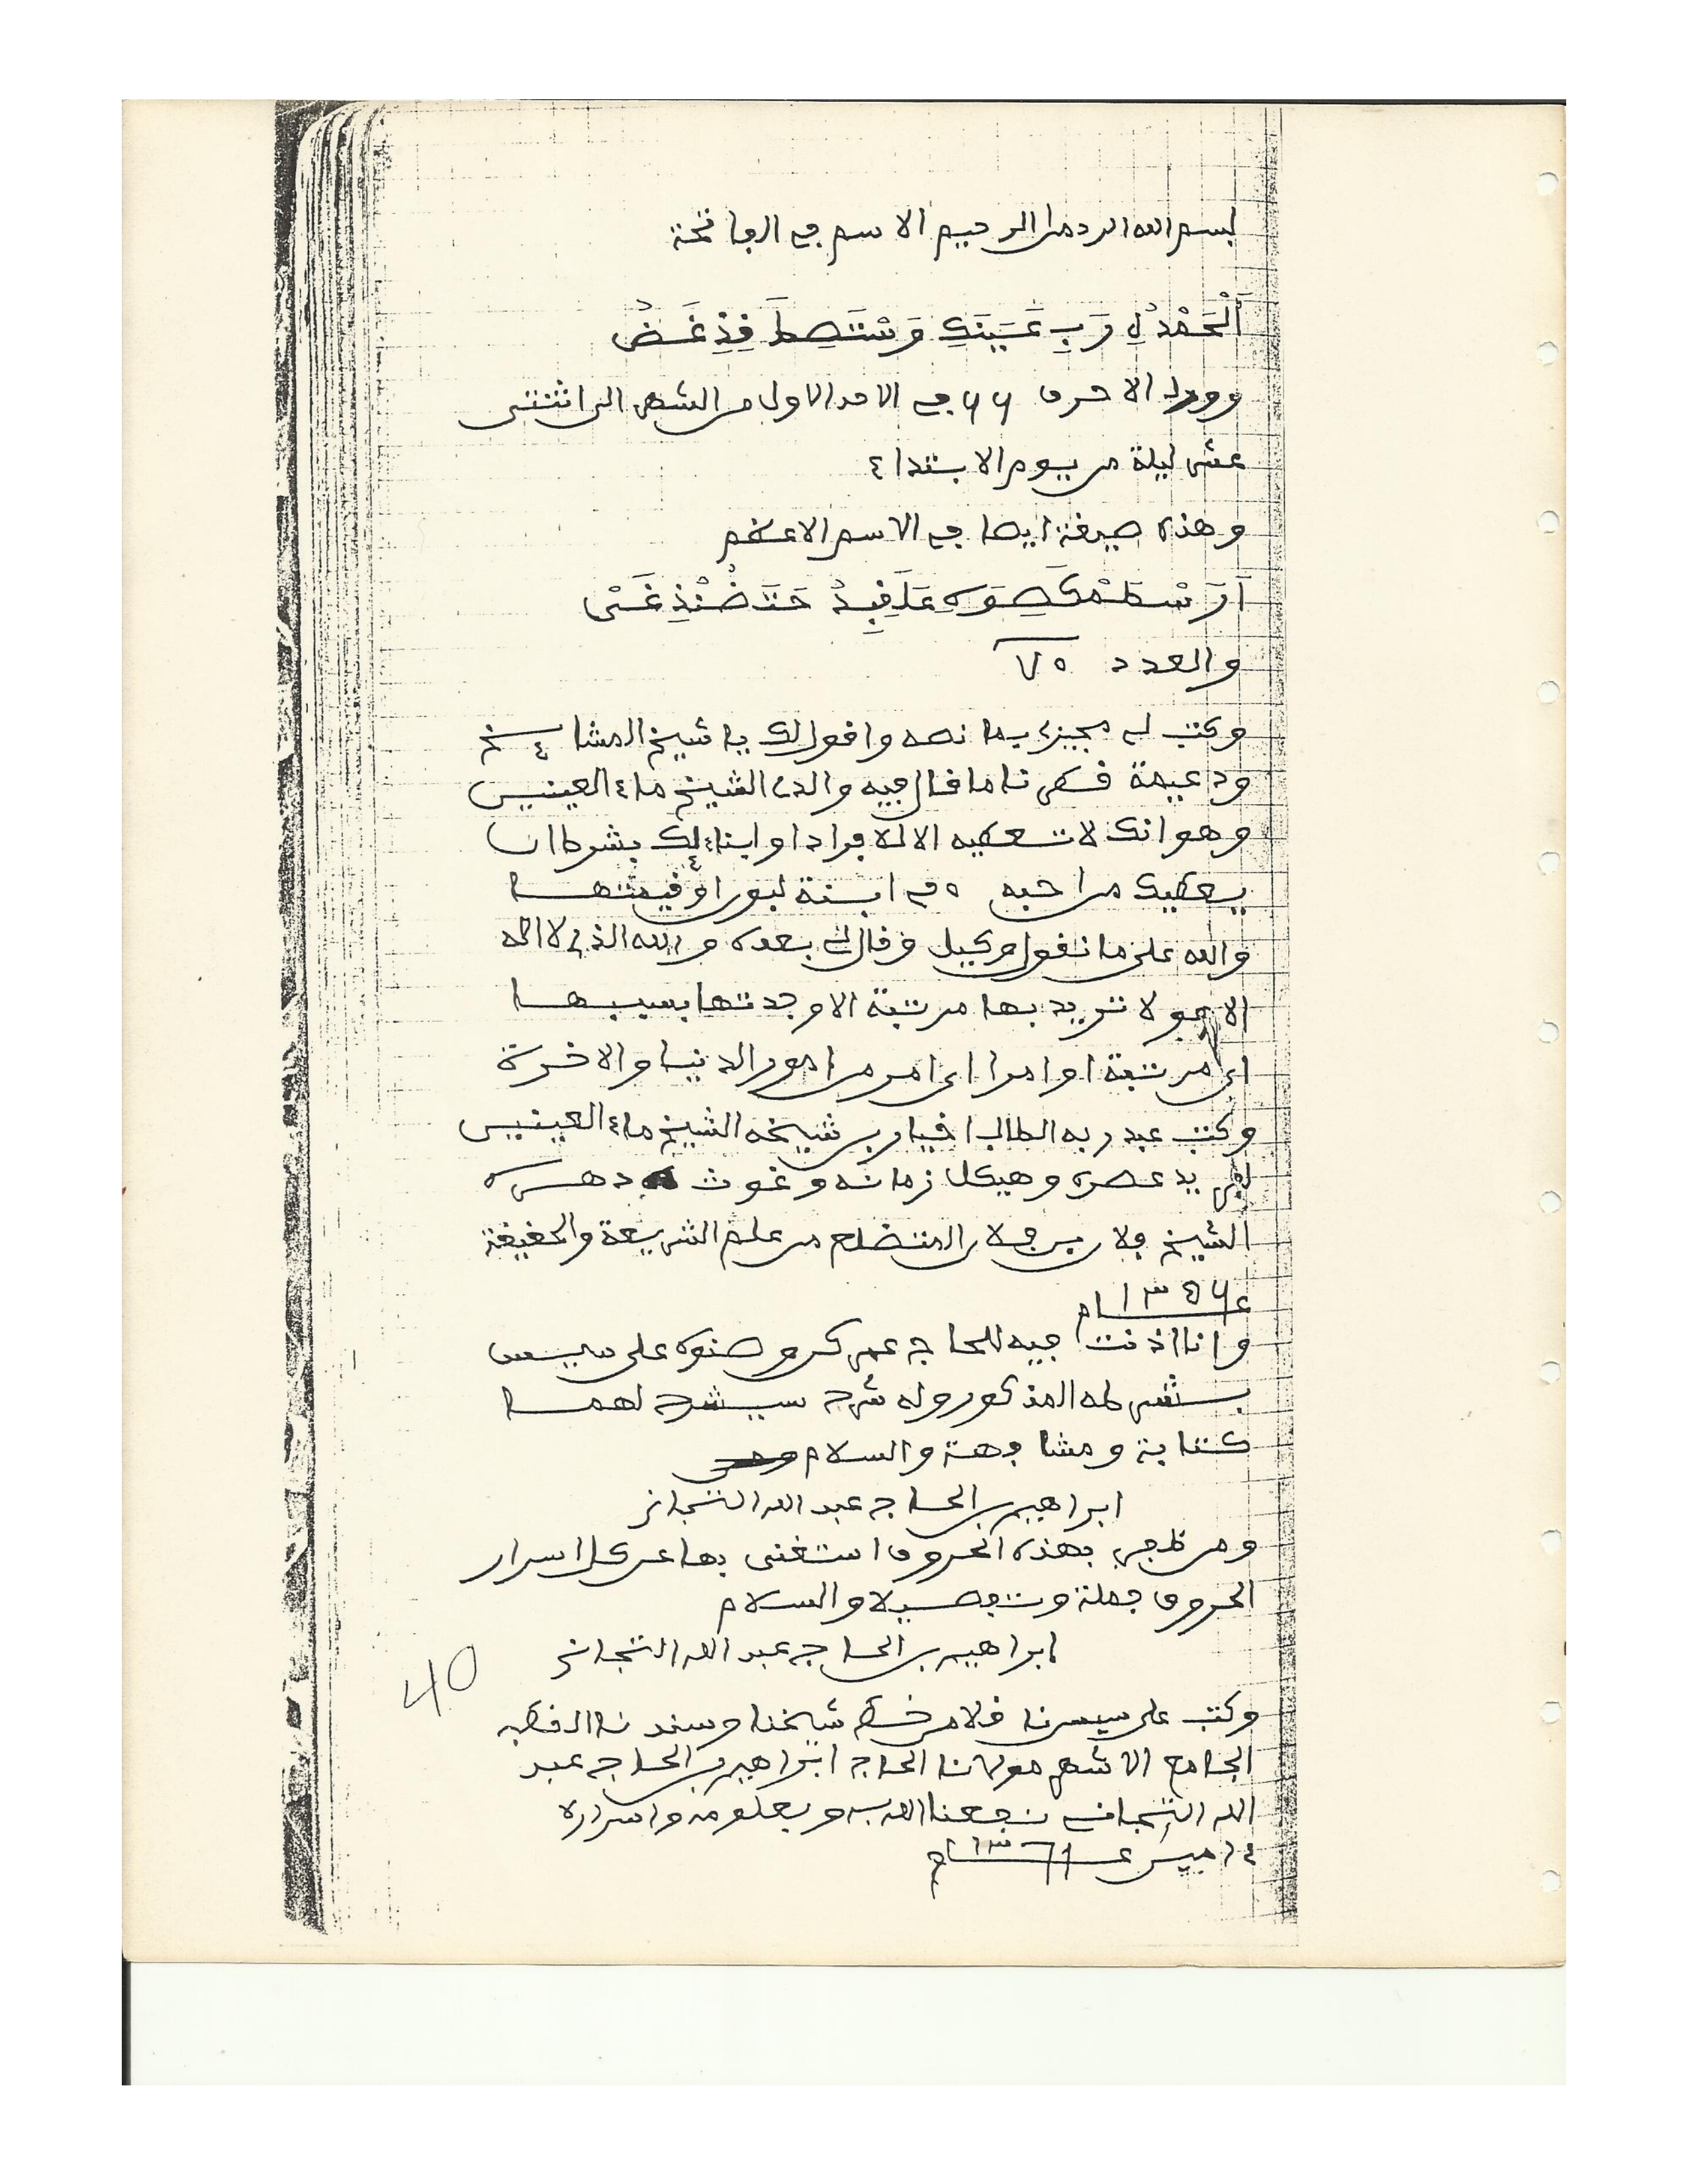 بسم الله الرحمن الرحيم الاسم في الفاتحة
أَلْحَمْدُ لِ رَبِ عَيَنَكِ وَسْتَصِطَ قِذِ غَضُ
وورد الاحرف ٦٦ في الاحد الاول من الشهر الى اثنتى
عشر ليلة من يوم الابتداء
وهذه صيغة ايضا في الاسم الاعظم
والعدد ٧٥
وكتب لى مجيزى بما نصه واقول لك يا شيخ المشائخ
ودعيمة قطرنا ما قال فيه والدى الشيخ ماء العينين
وهو انك لا تعطيه الا لافراد اوابنائك بشرط ان
يعطيك من احبه ٥ في ابنة لبون او قيمتها
والله على ما نقول وكيل وقال لى بعده والله الذى لا اله
الا هو لا تريد بها مرتبة الا وجدتها بسببها
اى مرتبة او امرا اى امر من امور الدنيا والاخرة
وكتب عبد ربه الطالب اخيار بن شيخه الشيخ ماء العينين
لفريد عصره وهيكل زمانه وغوث دهره
الشيخ فلان بن فلان المتضلع من علم الشريعة والحقيقة
عام ١٣٥٦
وانا اذنت فيه للحاج عمر كر وصنوه على سيس
بشرطه المذكور وله شرح سيشرح لهما
كتابة ومشافهة والسلام
ابراهيم بن الحاج عبد الله التجانى
ومن ظفر بهذه الحروف استغنى بها عن كل اسرار
الحروف جملة وتفصيلا والسلام
ابراهيم بن الحاج عبد الله التجانى
40
وكتب على سيس نقلا من خط شيخنا وسندنا القطب
الجامع الاشهر مولانا الحاج ابراهيم بن الحاج عبد
الله التجانى نفعنا الله به وبعلومه واسراره
ءامين عام ١٣٧١